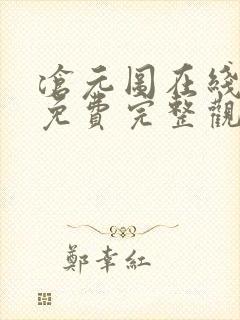 滄元圖在綫
免費完整觀
鄭幸紅